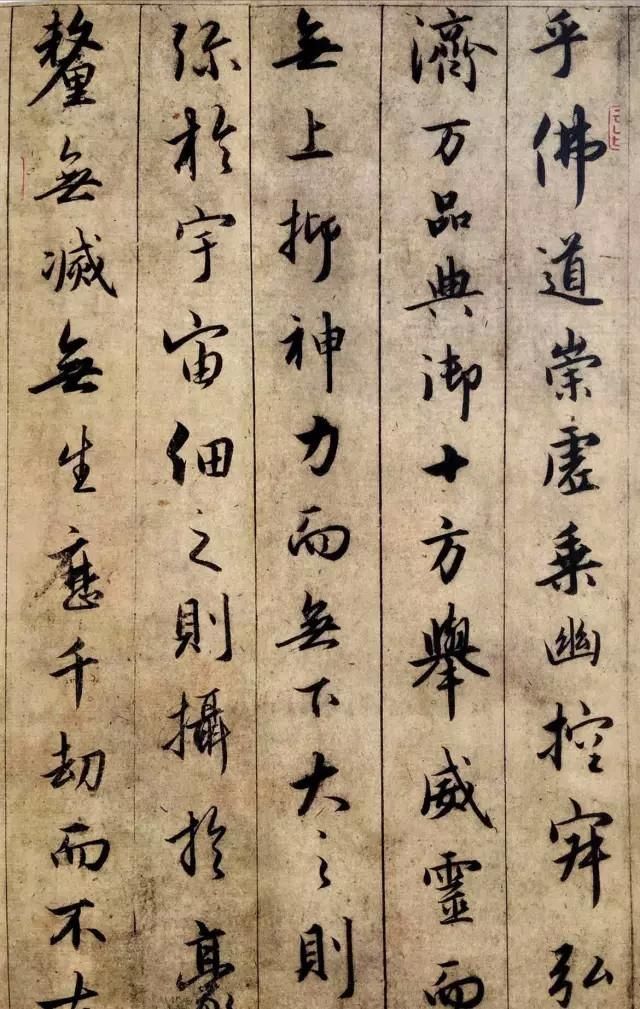 乎佛道崇虛乗幽控寂弘
濟万品典御十方舉威靈而
無上抑神力而無下大之則
弥於宇宙細之則攝於毫
釐無滅無生應千劫而不古